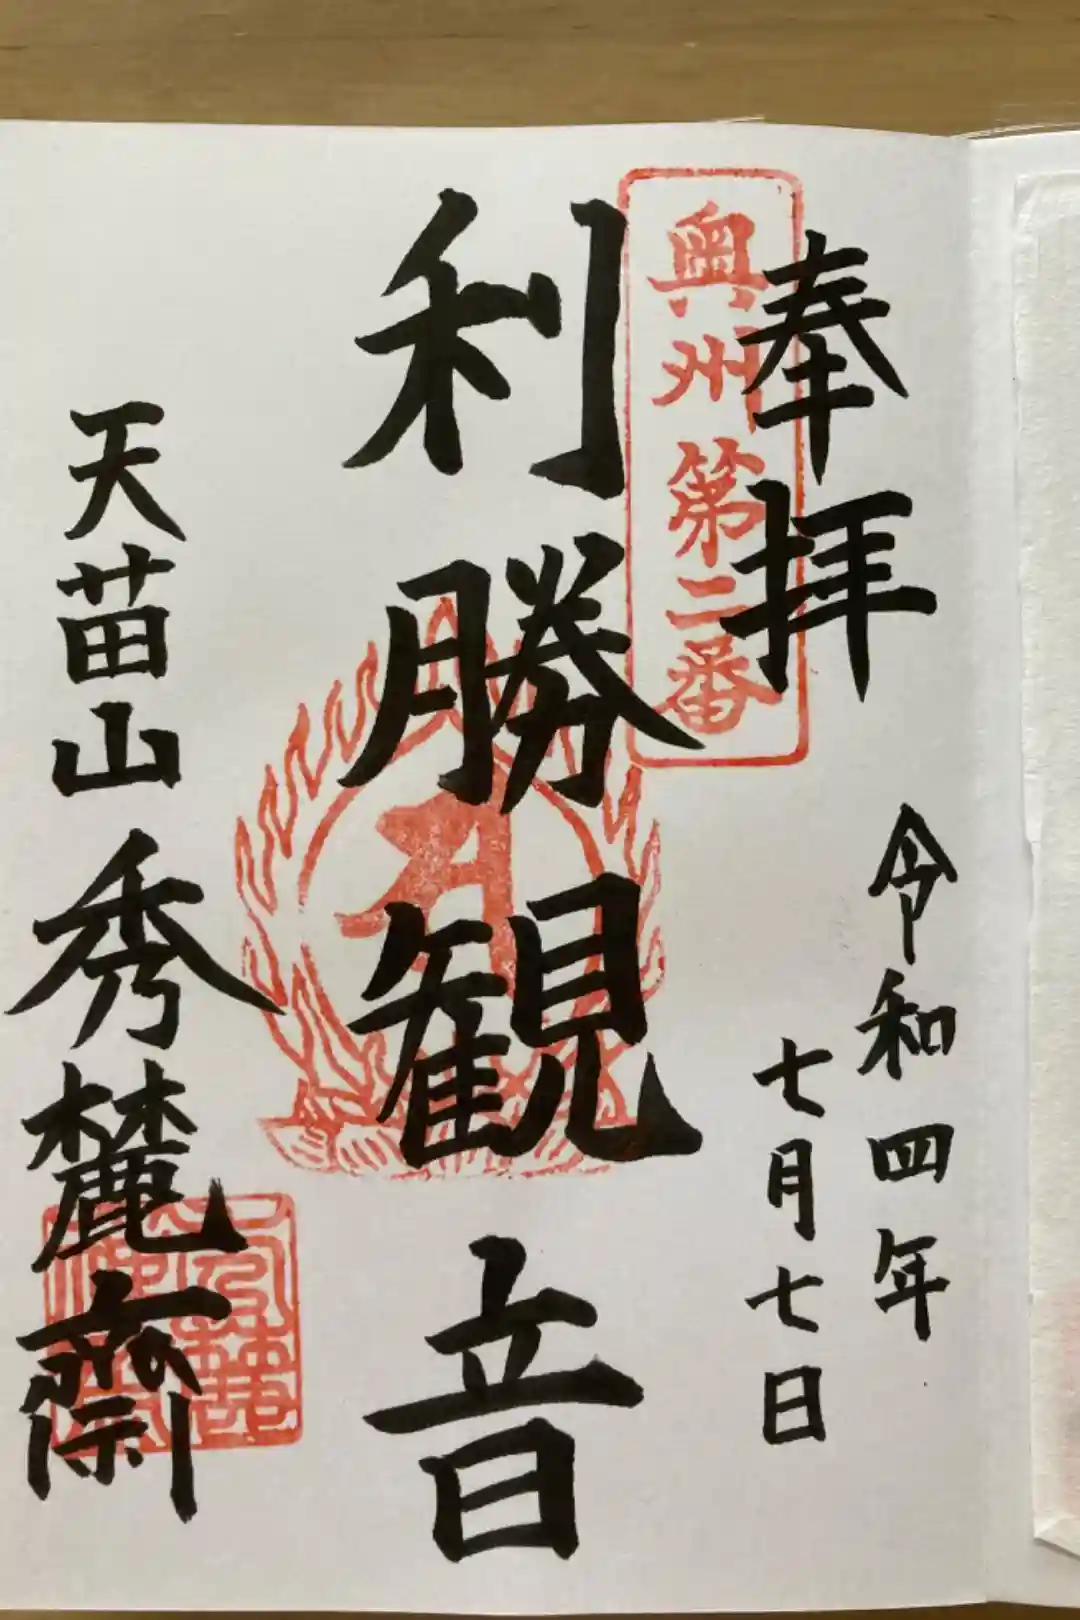 奉拝
令和四年
七月七日
奥州第二番
利勝観音
天苗山秀麓齋